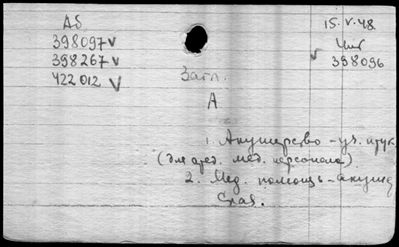 Аб
398097 v
398267 v
422012 v
15.V.48.
v Чит
398096
Загл.
А
1. Акушерство - уч. - рук.
(для сред. мед. персонала)
2. Мед. помощь - акуш